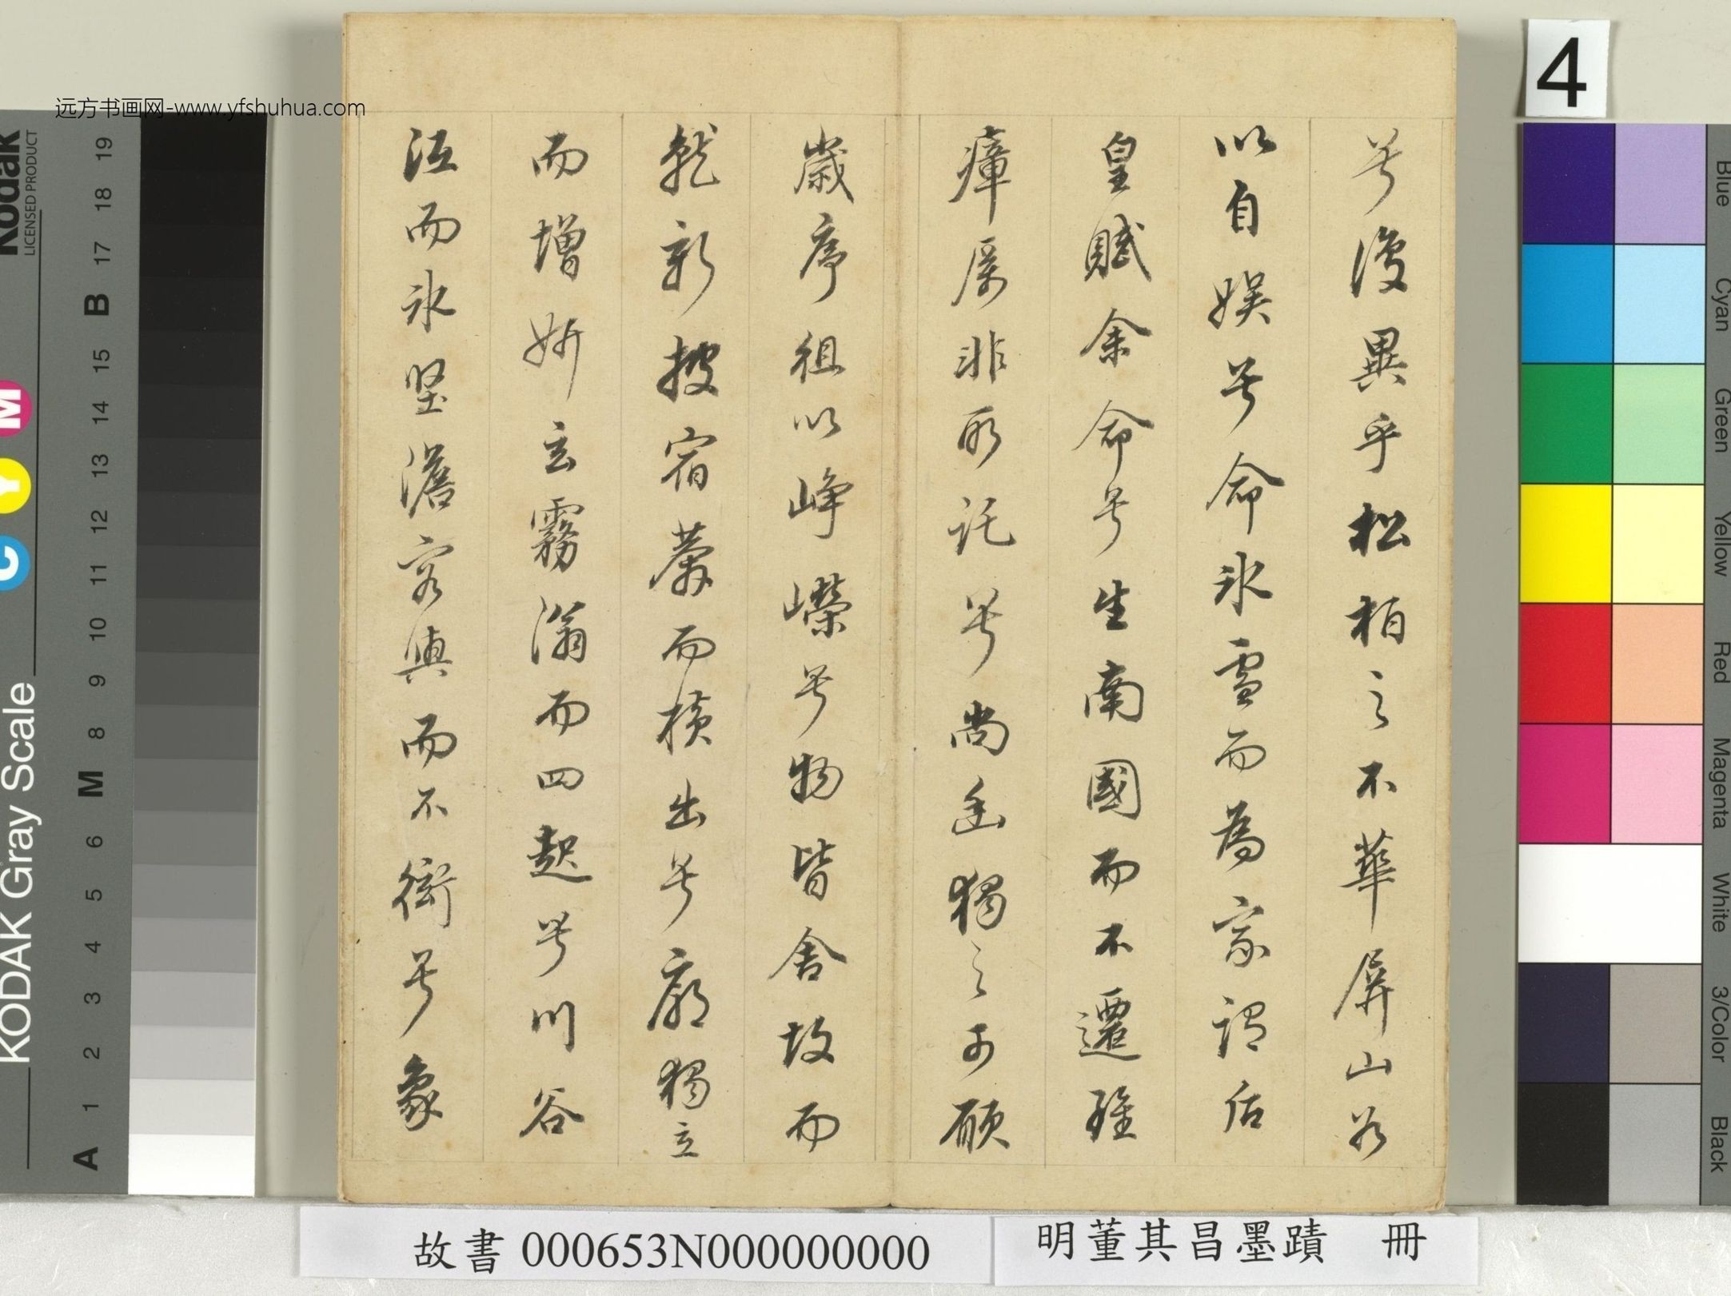 兮復異乎松柏之不華屏山谷
以自娛兮命冰雪而為家謂后
皇賦余命兮生南國而不遷雖
瘴厲非所託兮尚幽獨之可願
歲序徂以崢嶸兮物皆舍故而
就新披宿莽而橫出兮廓獨立
而增妍玄霧滃而四起兮川谷
沍而冰堅澹容與而不衒兮象
4
明董其昌墨蹟 冊
故書 000653N000000000
远方书画网-www.yfshuhua.com
Kodak
LICENSED PRODUCT
KODAK Gray Scale
C Y M
A 1 2 3 4 5 6 M 8 9 10 11 12 13 14 15 B 17 18 19
Blue
Cyan
Green
Yellow
Red
Magenta
White
3/Color
Black